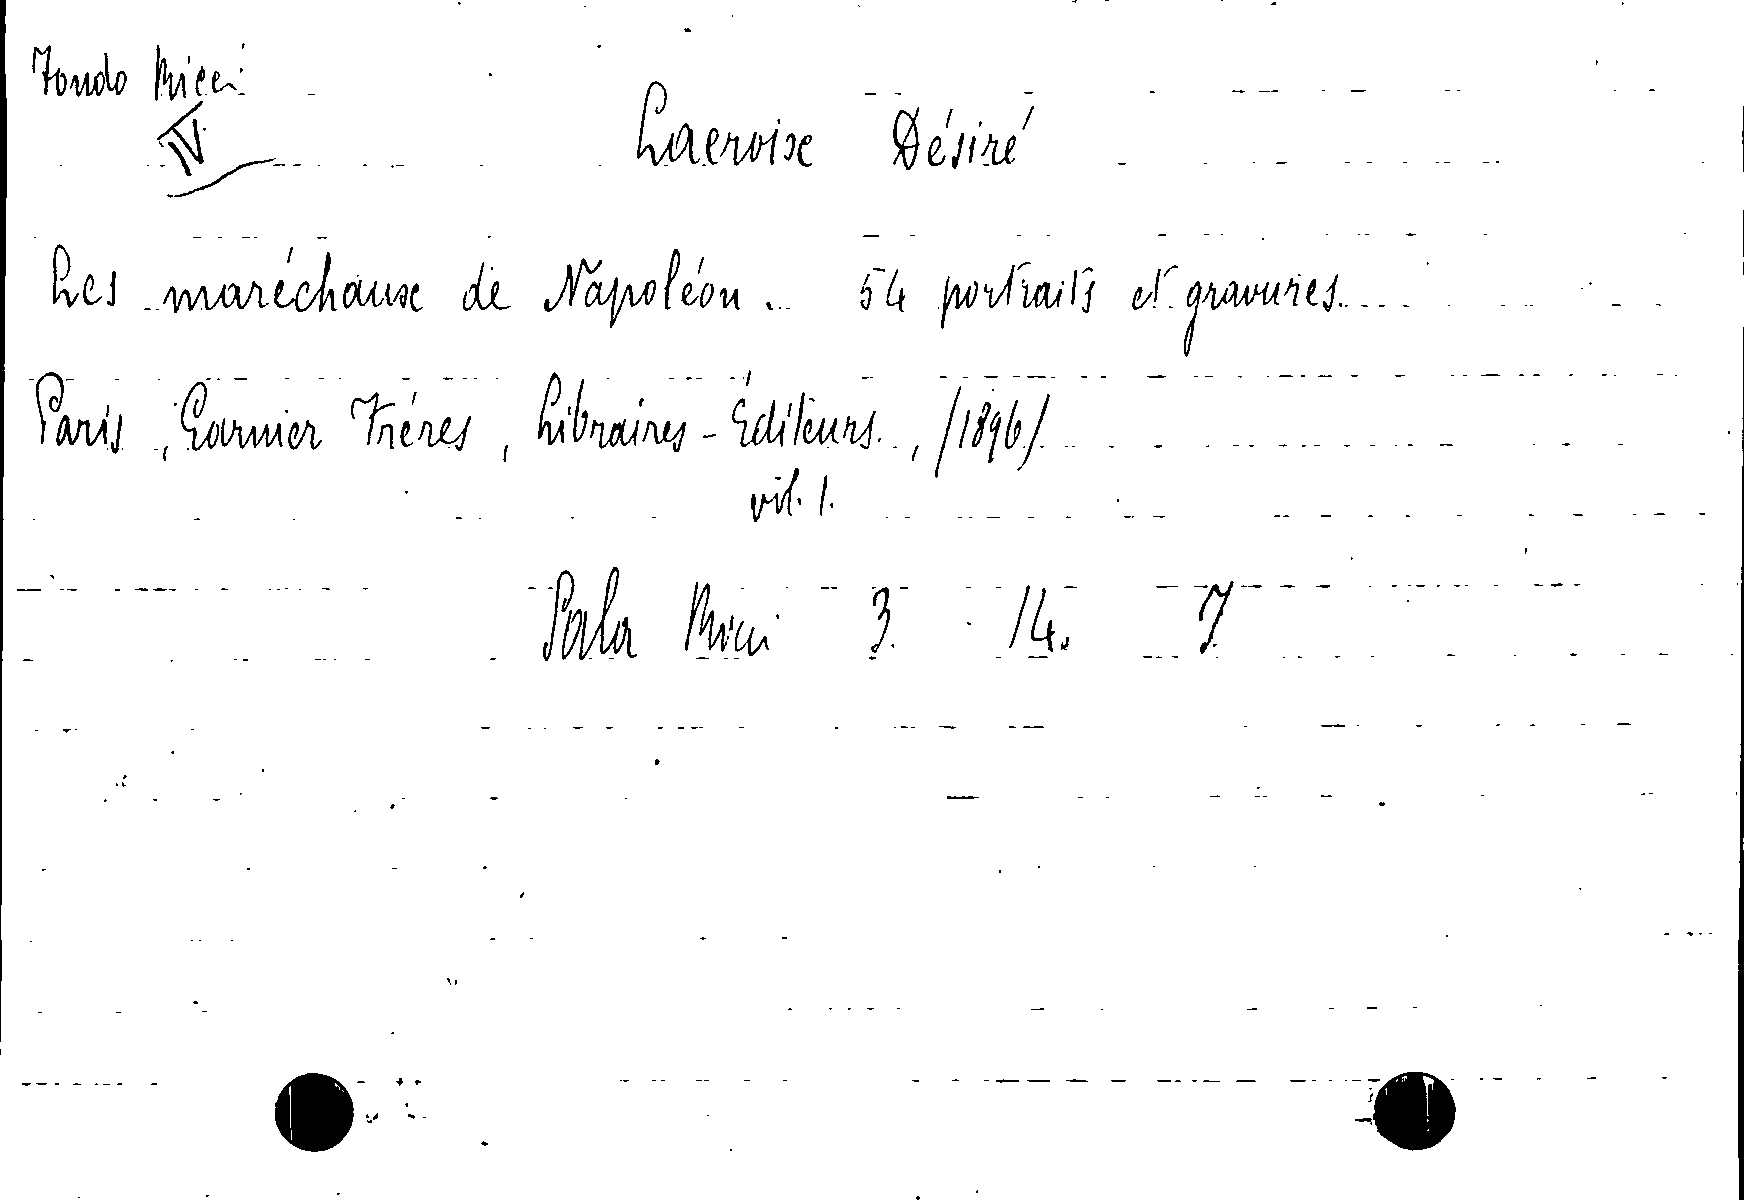 Fondo Ricci
IV
Lacroix Désiré
Les maréchaux de Napoléon. 54 portraits et gravures.
Paris, Garnier Fréres, Libraires-Éditeurs., /1896/
vol. 1.
Sala Ricci 3. 14. 7